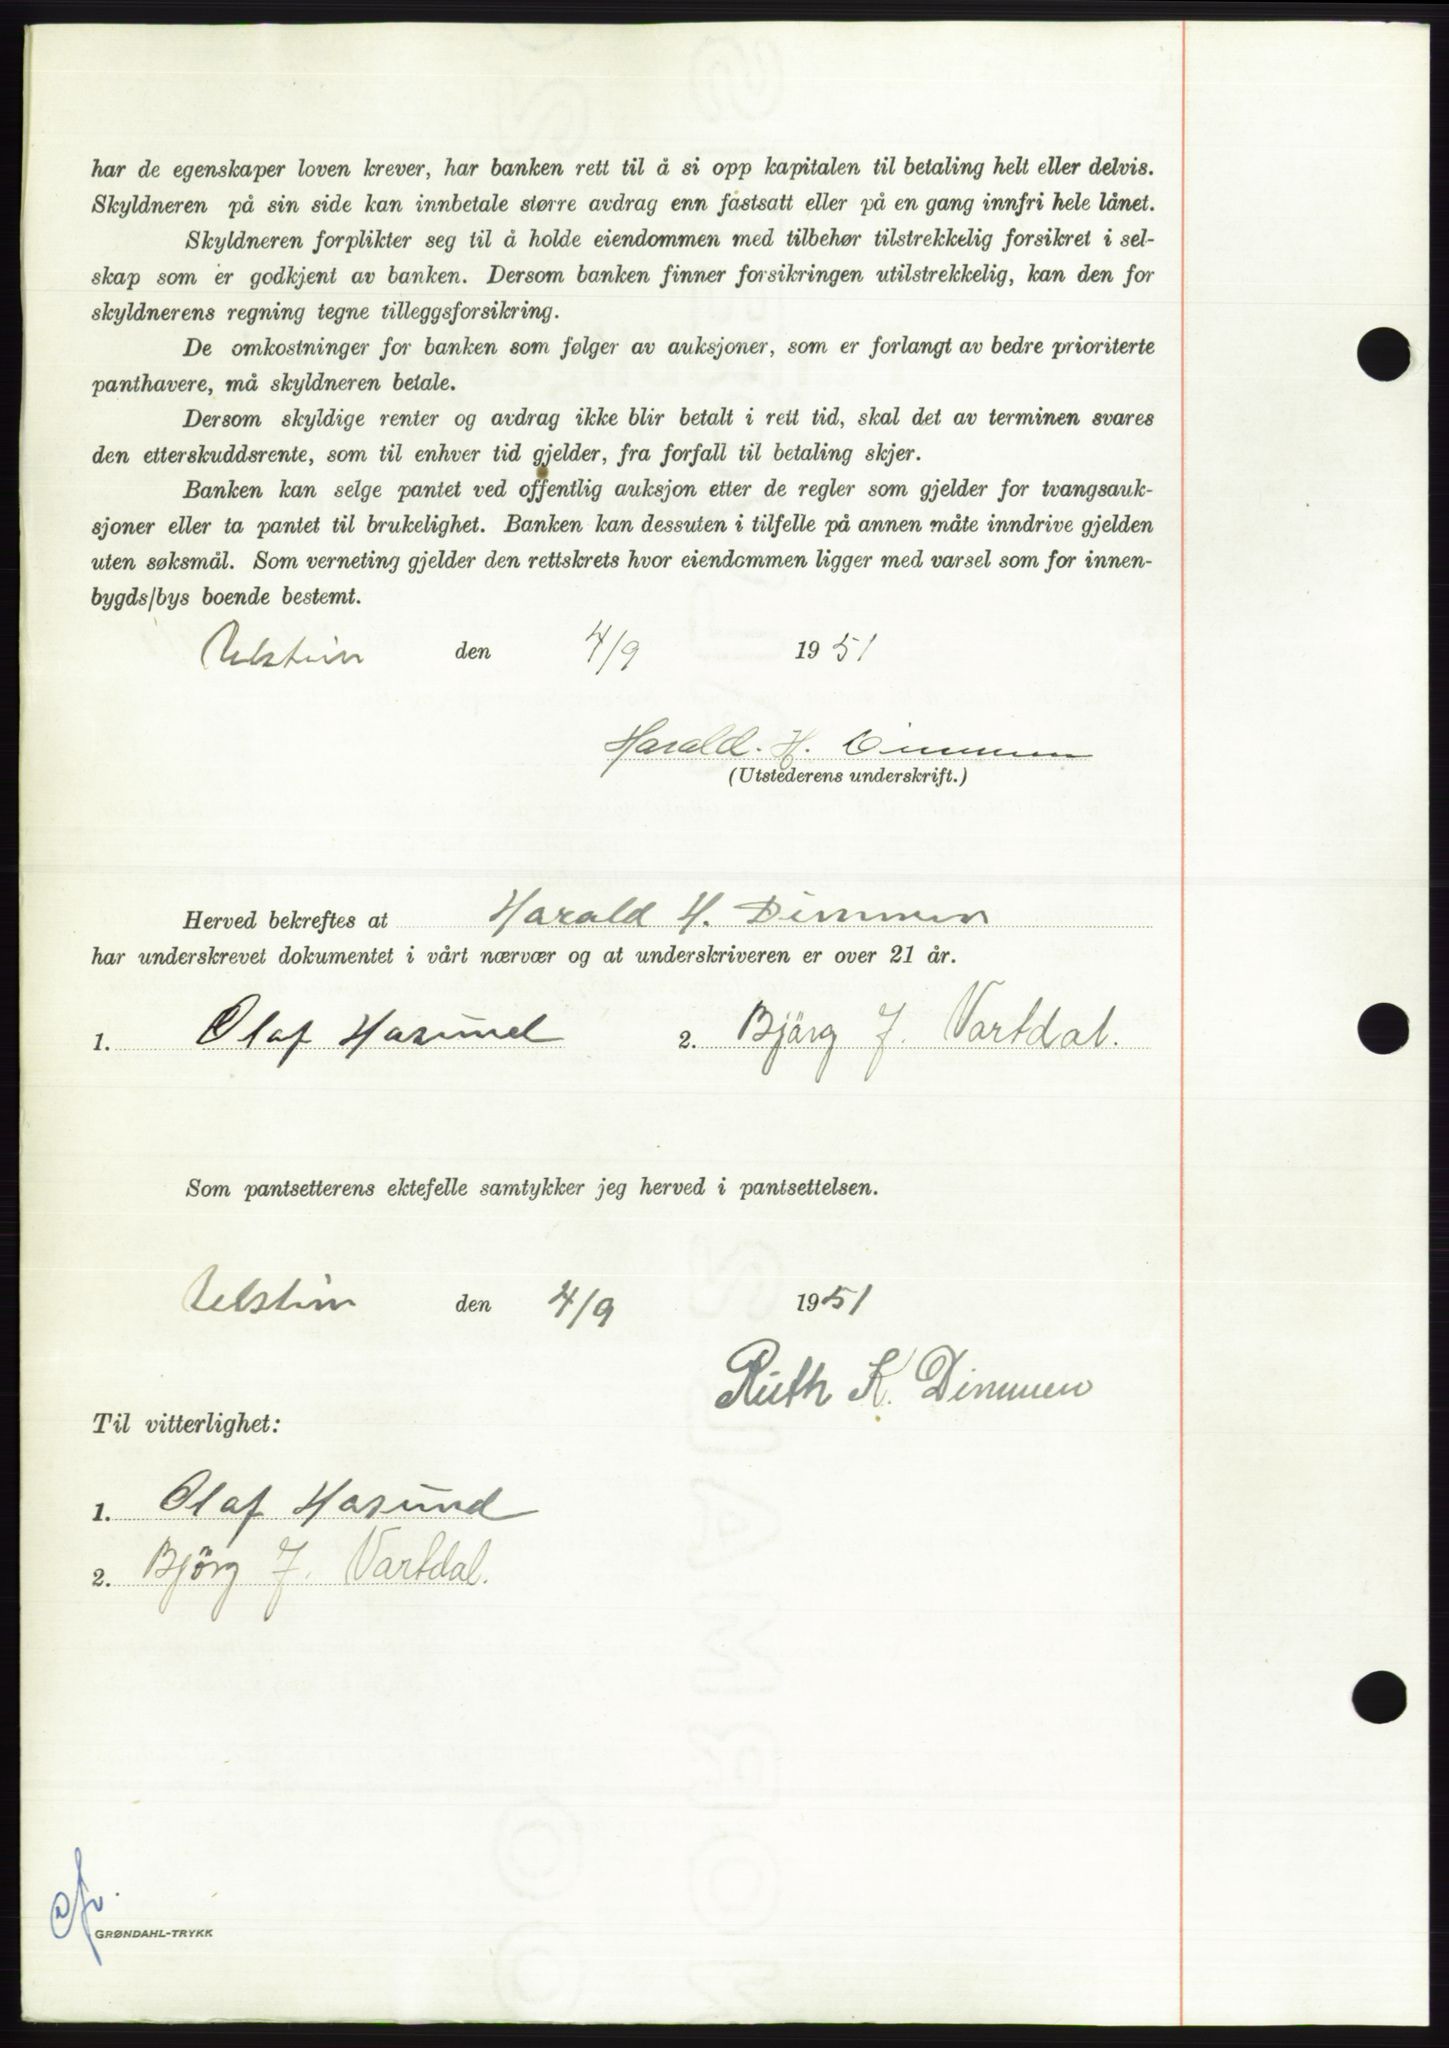 har de egenskaper loven krever, har banken rett til å si opp kapitalen til betaling helt eller delvis.
Skyldneren på sin side kan innbetale større avdrag enn fastsatt eller på en gang innfri hele lånet.
Skyldneren forplikter seg til å holde eiendommen med tilbehør tilstrekkelig forsikret i sel-
skap som er godkjent av banken. Dersom banken finner forsikringen utilstrekkelig, kan den for
skyldnerens regning tegne tilleggsforsikring.
De omkostninger for banken som følger av auksjoner, som er forlangt av bedre prioriterte
panthavere, må skyldneren betale.
Dersom skyldige renter og avdrag ikke blir betalt i rett tid, skal det av terminen svares
den etterskuddsrente, som til enhver tid gjelder, fra forfall til betaling skjer.
Banken kan selge pantet ved offentlig auksjon etter de regler som gjelder for tvangsauk-
sjoner eller ta pantet til brukelighet. Banken kan dessuten i tilfelle på annen måte inndrive gjelden
uten søksmål. Som verneting gjelder den rettskrets hvor eiendommen ligger med varsel som for innen-
bygds/bys boende bestemt.
Ulstein den 4/9 1951
Harald. H. Dimmen
(Utstederens underskrift.)
Herved bekreftes at Harald H. Dimmen
har underskrevet dokumentet i vårt nærvær og at underskriveren er over 21 år.
1. Olaf Hasund 2. Bjørg J. Vartdal.
Som pantsetterens ektefelle samtykker jeg herved i pantsettelsen.
Ulstein den 4/9 1951
Ruth K. Dimmen
Til vitterlighet:
1. Olaf Hasund
2. Bjørg J. Vartdal.
GRØNDAHL-TRYKK